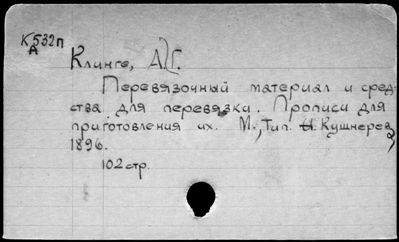 К532п
А
Клинге, А.Г.
Перевязочный материал и сред-
ства для перевязки. Прописи для
приготовления их. М., Тип. И. Кушнерев,
1896.
102 стр.